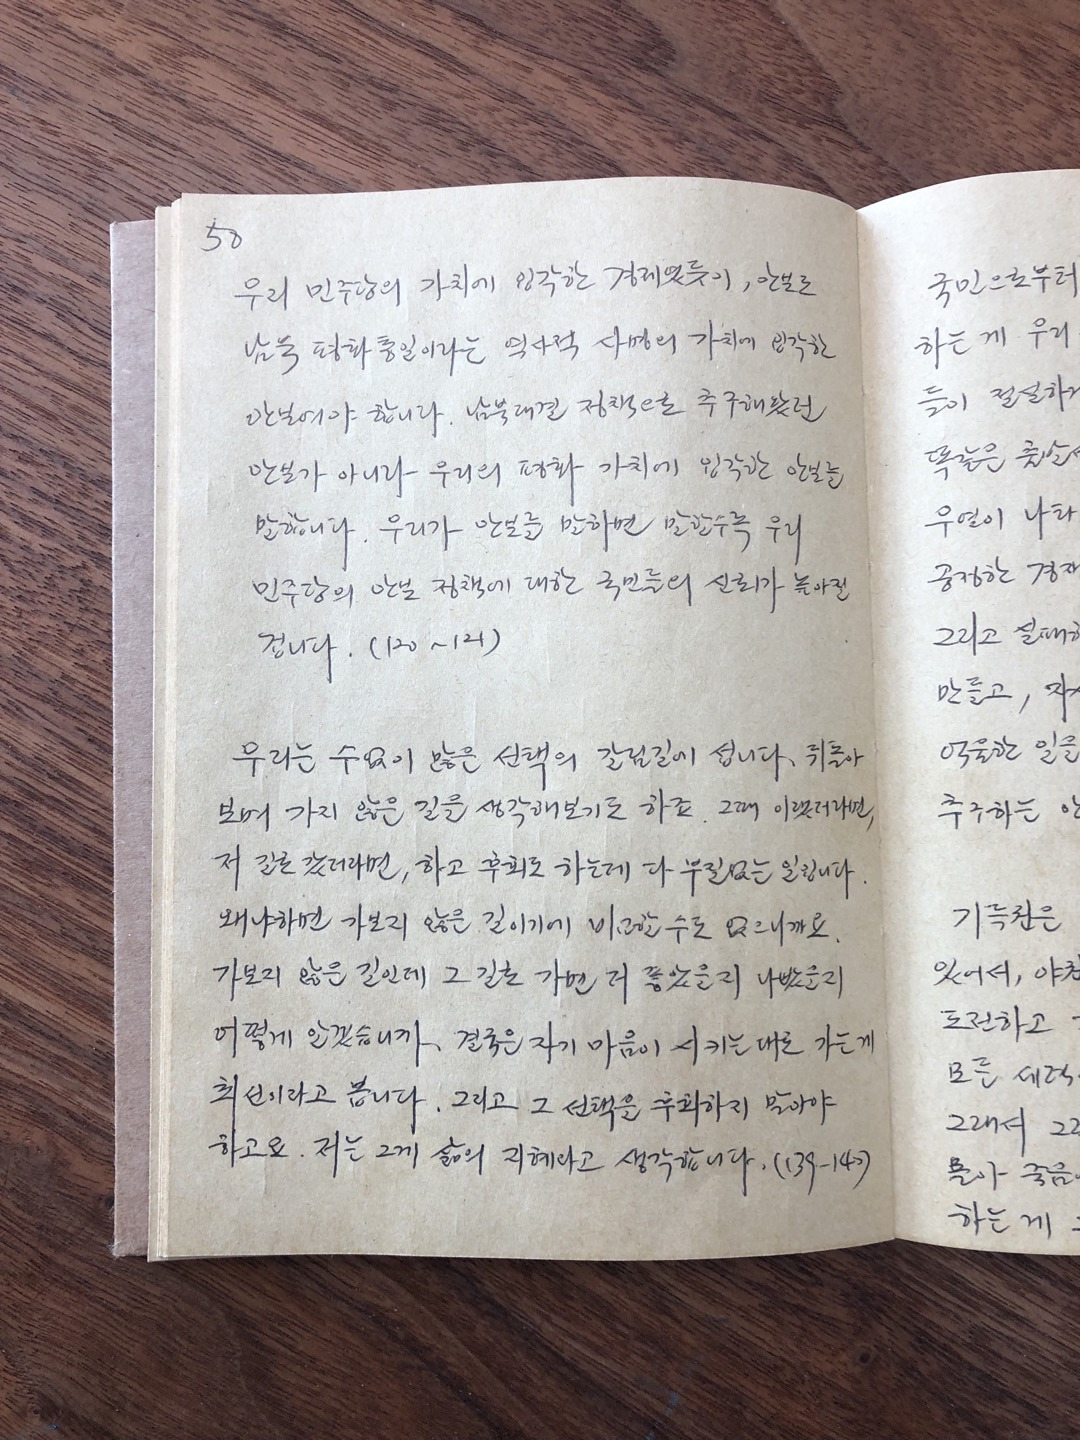 50
우리 민주당의 가치에 입각한 경제였듯이, 안보도
남북 평화통일이라는 역사적 사명의 가치에 입각한
안보여야 합니다. 남북대결 정책으로 추구해왔던
안보가 아니라 우리의 평화 가치에 입각한 안보를
말합니다. 우리가 안보를 말하면 말할수록 우리
민주당의 안보 정책에 대한 국민들의 신뢰가 높아질
겁니다. (120~121)
우리는 수없이 많은 선택의 갈림길에 섭니다. 뒤돌아
보며 가지 않은 길을 생각해보기도 하죠. 그때 이랬더라면,
저 길로 갔더라면, 하고 후회도 하는데 다 부질없는 일입니다.
왜냐하면 가보지 않은 길이기에 비교할 수도 없으니까요.
가보지 않은 길인데 그 길로 가면 더 좋았을지 나빴을지
어떻게 알겠습니까. 결국은 자기 마음이 시키는 대로 가는게
최선이라고 봅니다. 그리고 그 선택을 후회하지 말아야
하고요. 저는 그게 삶의 지혜라고 생각합니다.
국민으로부터
하는 게 우리
들이 절실하게
똑같은 출발
우열이 나타
공정한 경쟁
그리고 실패
만들고,
억울한 일을
추구하는
기득권은
있어서,
도전하고
모든 세력
그래서
몰아 죽음
하는 게